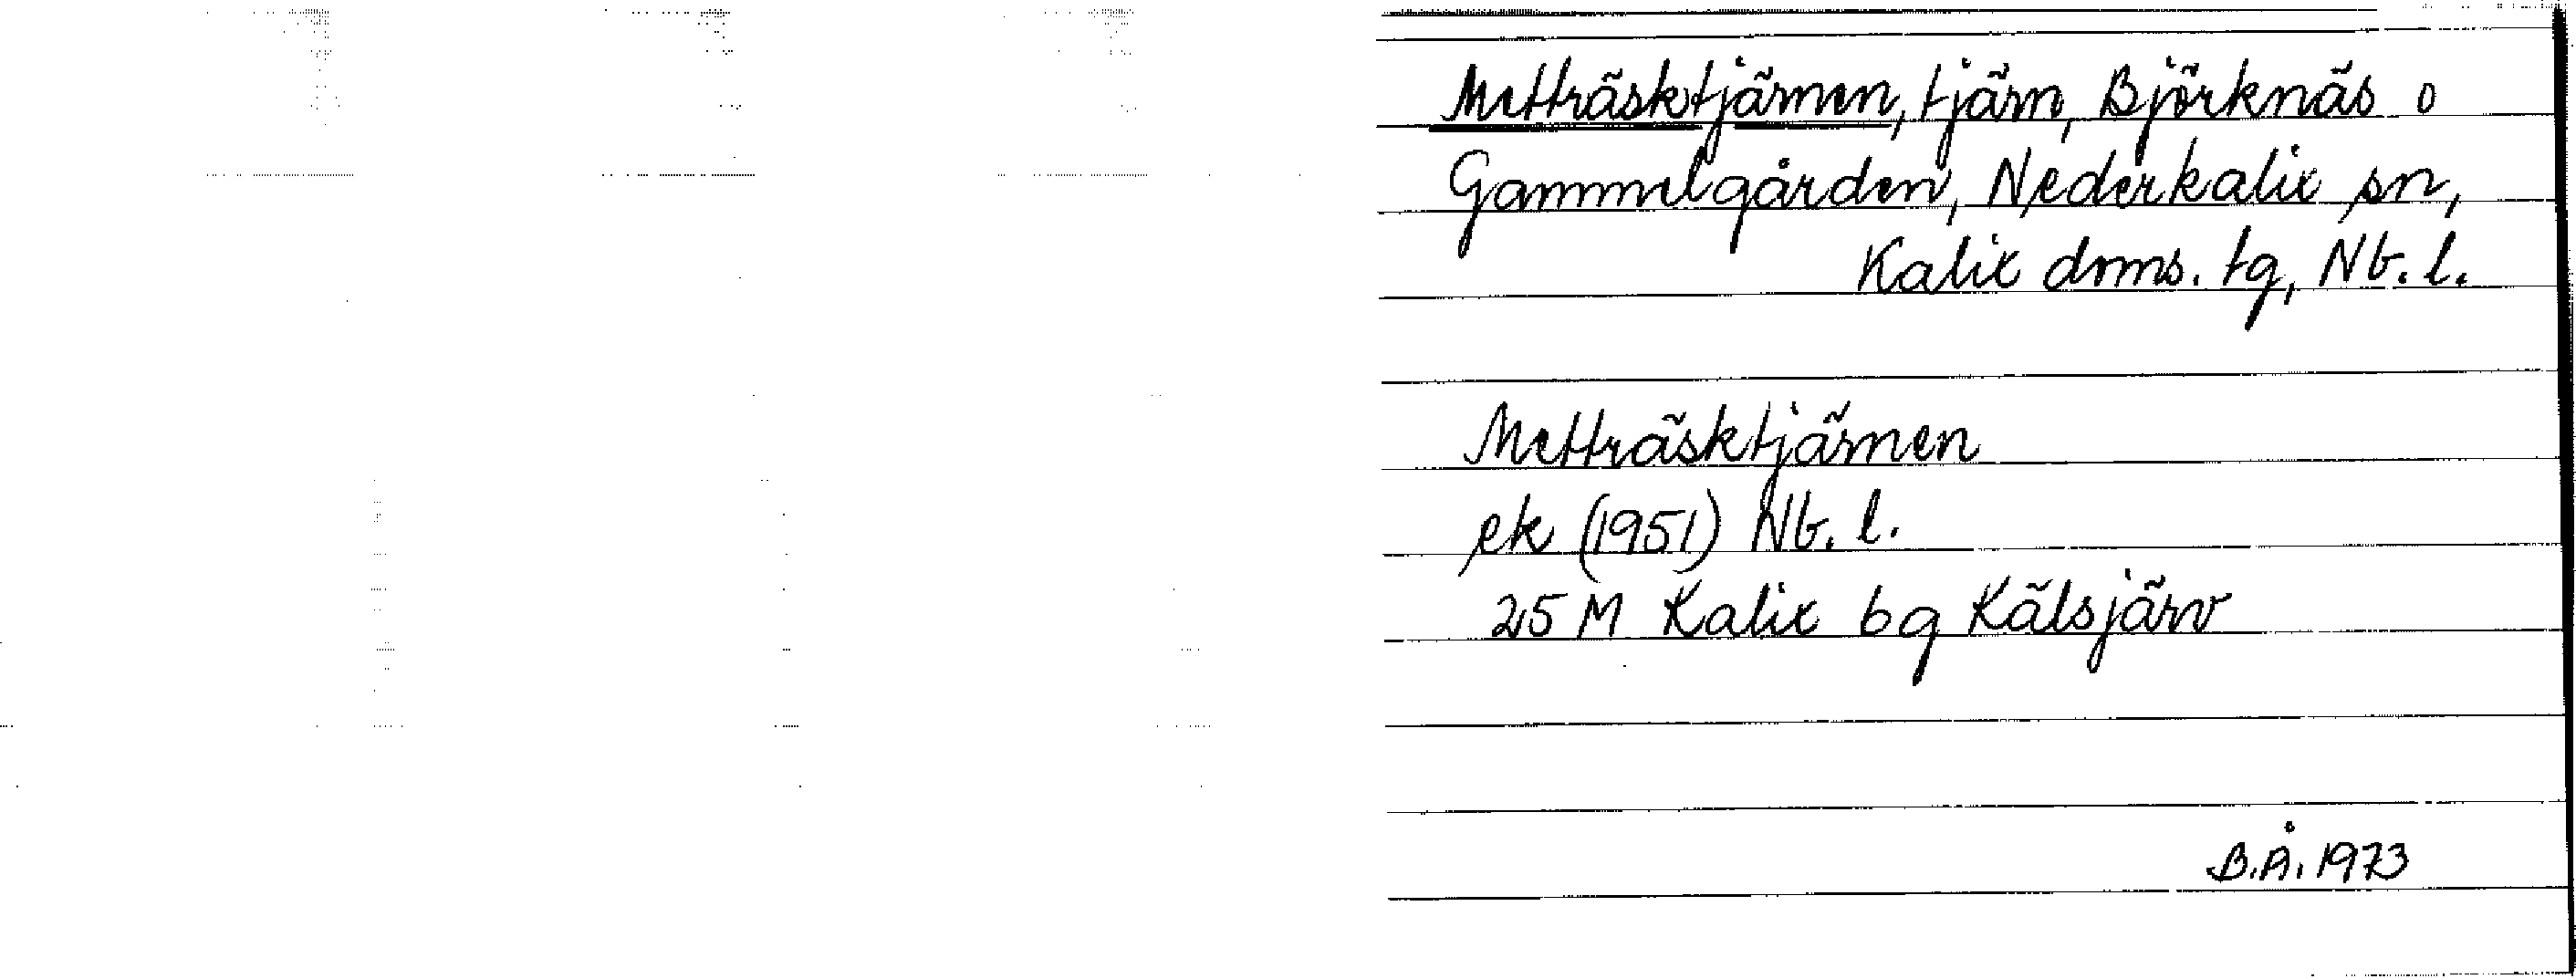 Metträsktjärnen, tjärn, Björknäs o
Gammelgården, Nederkalix sn,
Kalix doms. tg, Nb. l.
Metträsktjärnen
ek (1951) Nb. l.
25 M Kalix 6 g Kälsjärv
B.Å. 1973